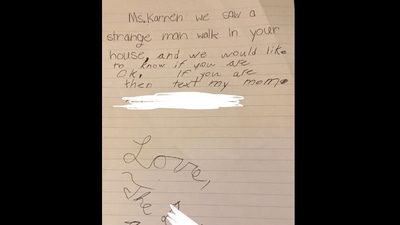 Ms. Karren we saw a
strange man walk in your
house, and we would like
to know if you are
OK. If you are
then text my mom.
Love,
The